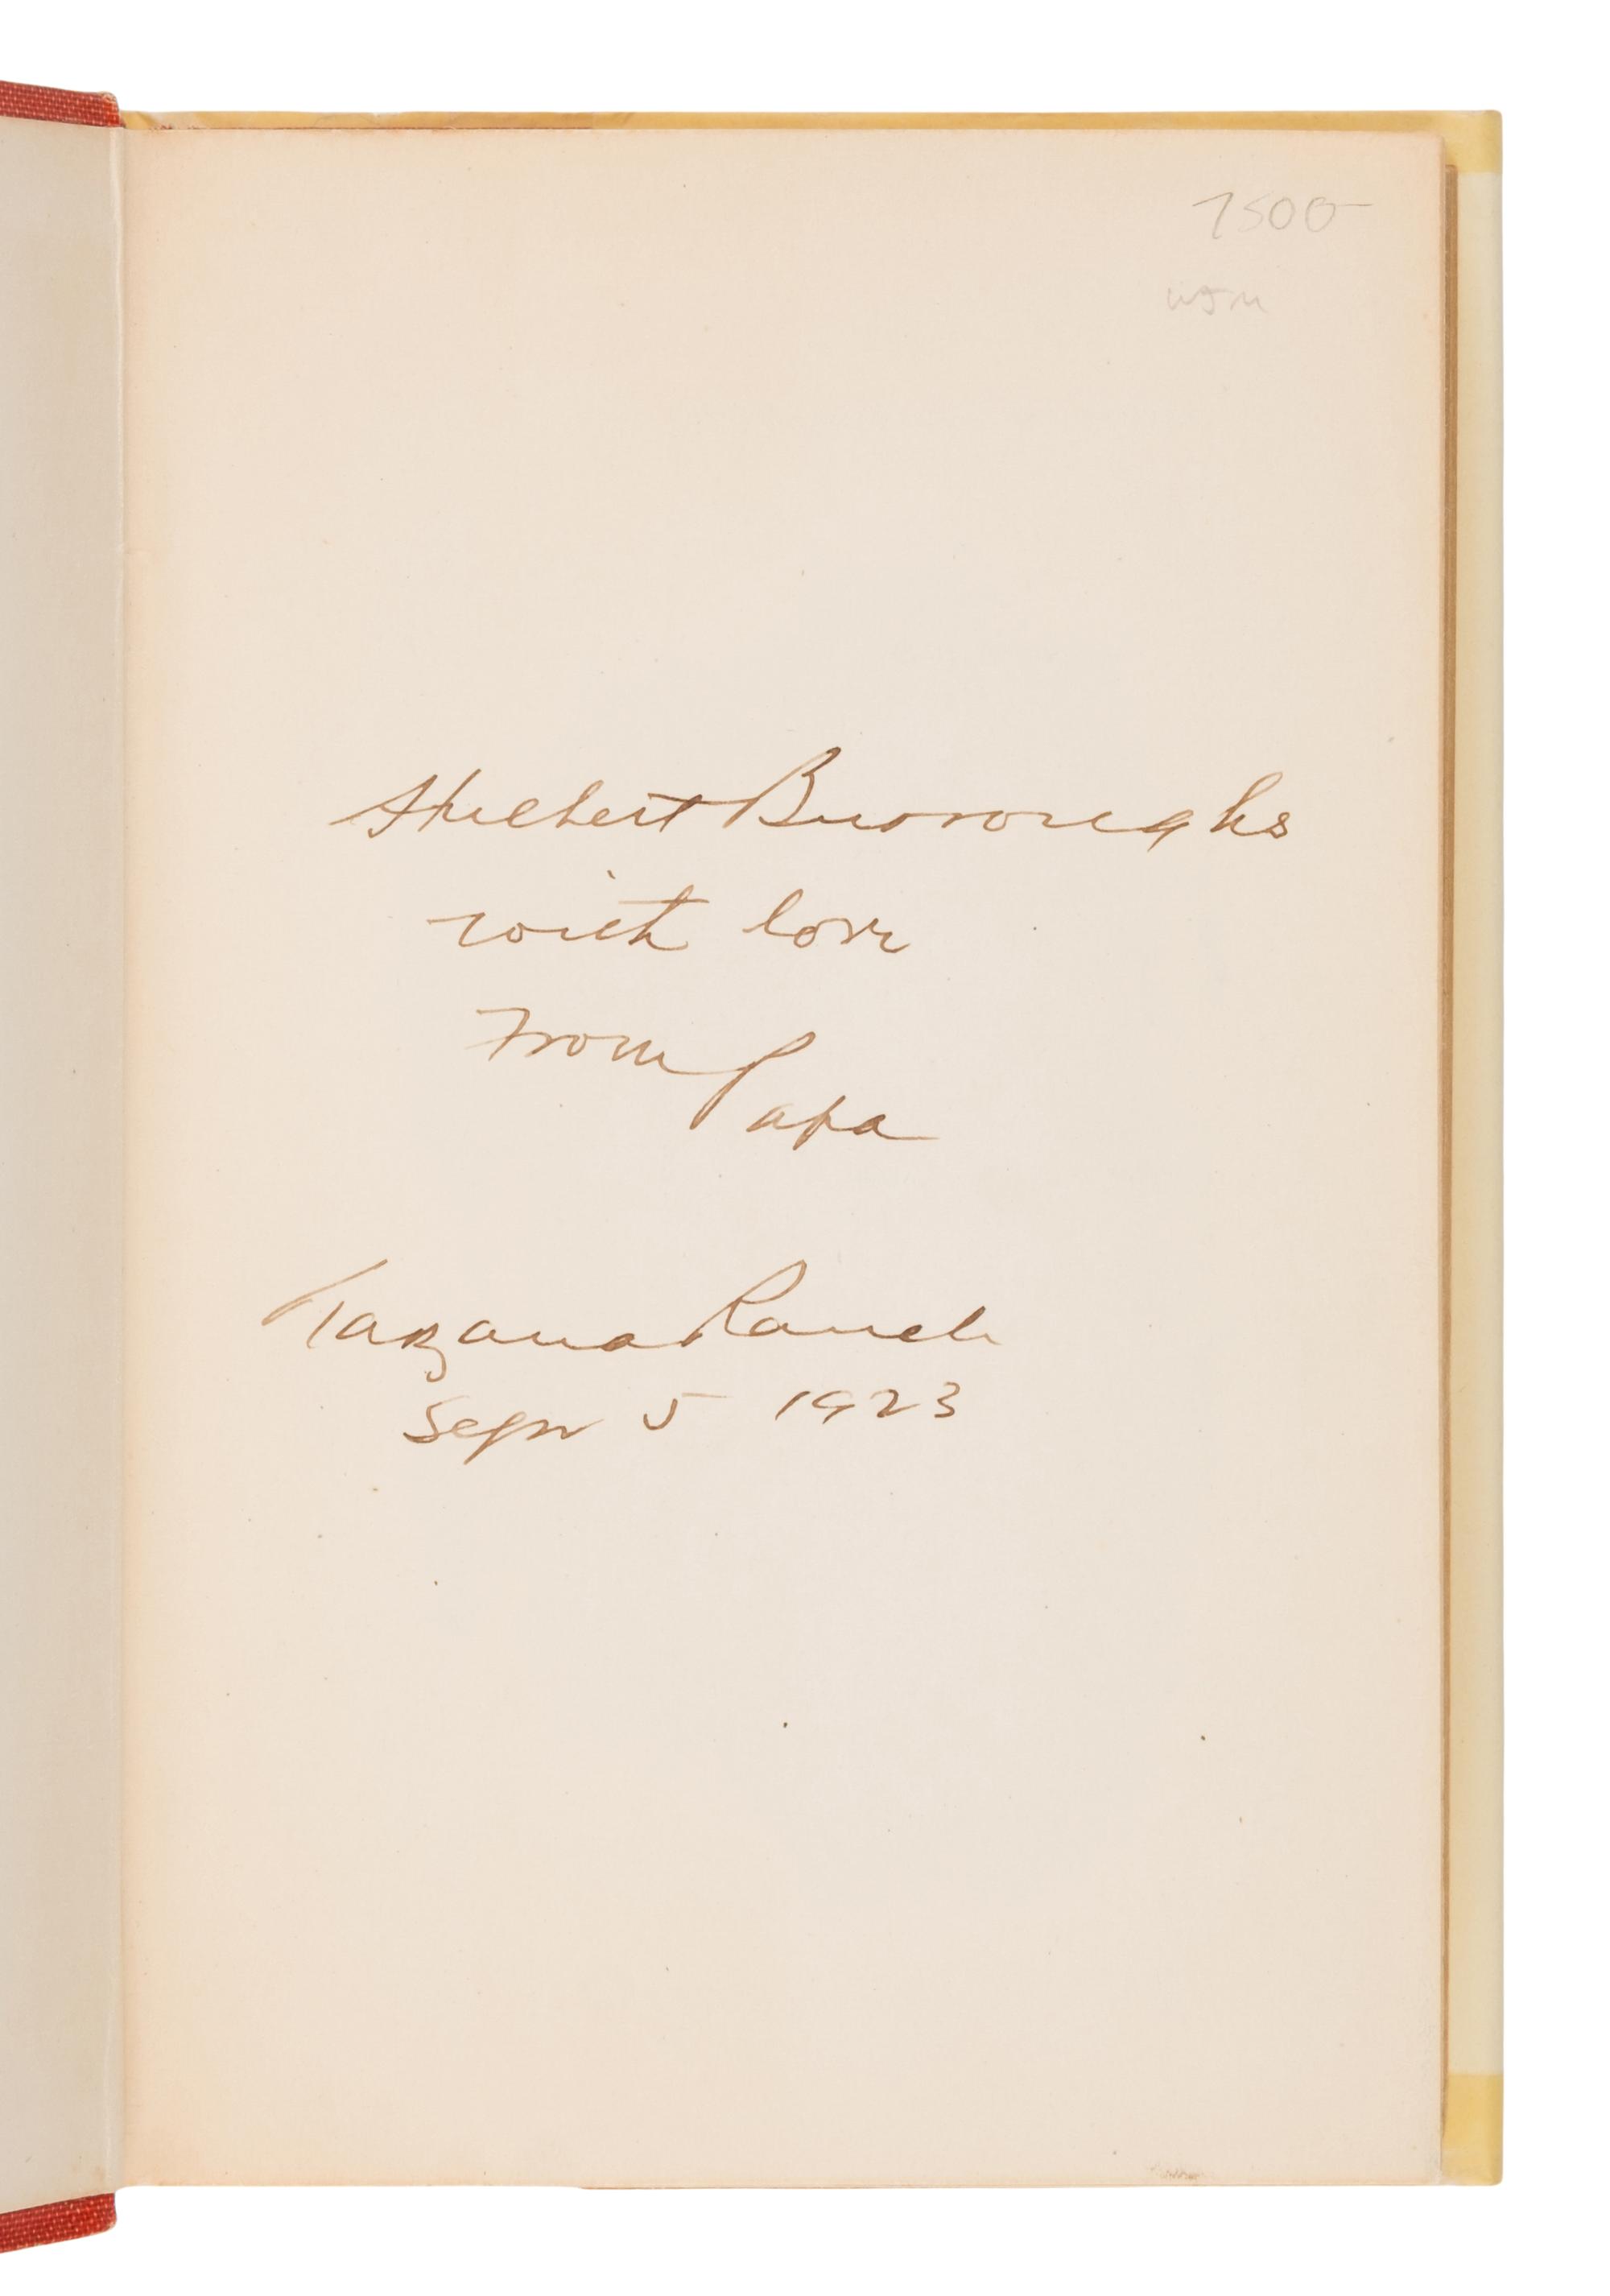 7500-
WJM
Hulbert Burroughs
with love
From Papa
Tarzana Ranch
Sept 5 1923